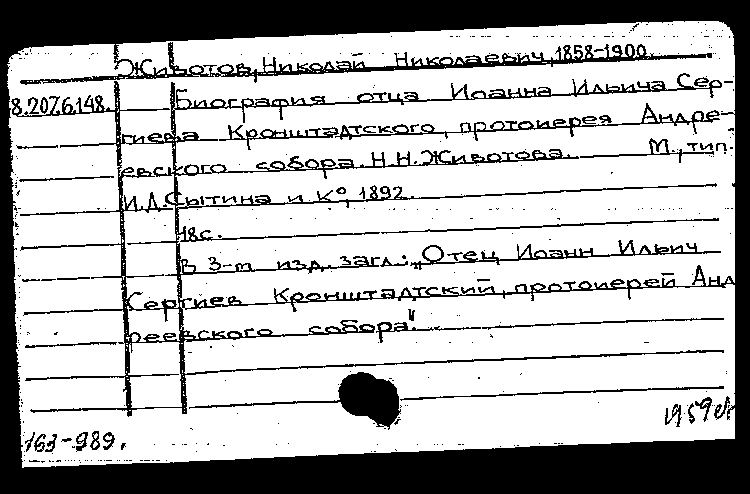 Животов, Николай Николаевич, 1858-1900.
8.2076.148. Биография отца Иоанна Ильича Сер-
гиева Кронштадтского, протоиерея Андре-
евского собора. Н.Н.Животова. М., тип.
И.Д.Сытина и К°, 1892.
18с.
В 3-м изд. загл.: „Отец Иоанн Ильич
Сергиев Кронштадтский, протоиерей Анд
реевского собора".
163-989.